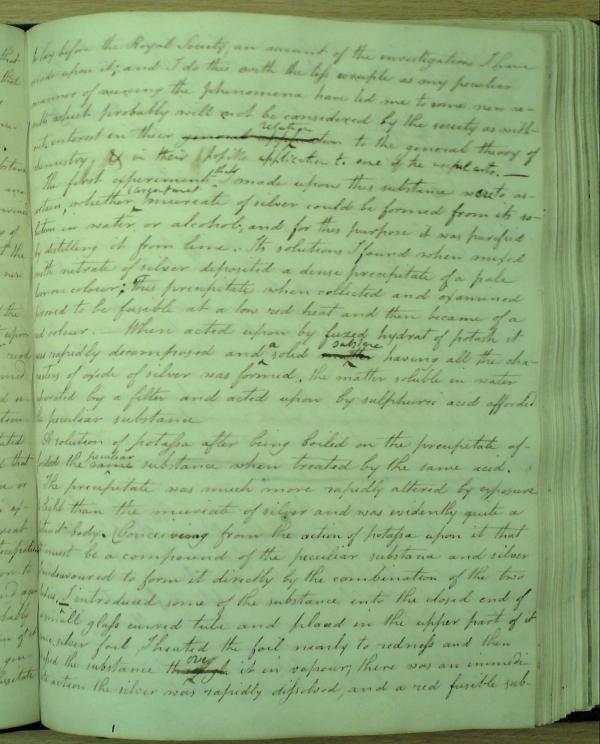 to lay before the Royal Society, an account of the investigations I have
made upon it; and I do this with the less scruple as my peculiar
manner of viewing the phenomena have led me to some new re-
sults which probably will not be considered by the society as with-
out interest in their general application relation to the general theory of
chemistry, & in their possible application to one of the useful arts. —
The first experiments that I made upon this substance were to as-
certain, whether (argentane) muriate of silver could be formed from its so-
lution in water or alcohol; and for this purpose it was purified
by distilling it from lime. Its solutions I found when mixed
with nitrate of silver deposited a dense precipitate of a pale
lemon colour; This precipitate when collected and examined
proved to be fusible at a low red heat and then became of a
red colour. — When acted upon by fuzed hydrat of potash it
was rapidly decomposed and a solid matter substance having all the cha-
racters of oxide of silver was formed. the matter soluble in water
separated by a filter and acted upon by sulphuric acid afforded
the peculiar substance
A solution of potassa after being boiled on the precipitate af-
forded the same peculiar substance when treated by the same acid.
The precipitate was much more rapidly altered by exposure
to light than the muriate of silver and was evidently quite a
distinct body. (Conceiveing from the action of potassa upon it that
it must be a compound of the peculiar substance and silver
I endeavoured to form it directly by the combination of the two
bodies. I introduced some of the substance into the closed end of
a small glass curved tube and placed in the upper part of it
some silver foil, I heated the foil nearly to redness and then
passed the substance through over it in vapour; there was an immedi-
ate action the silver was rapidly dissolved, and a red fusible sub-